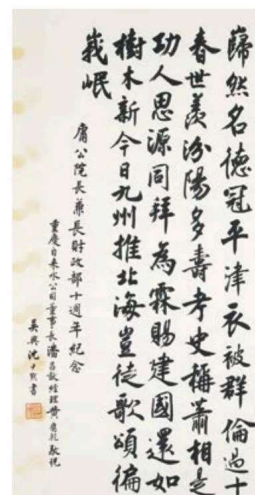 歸然名德冠平津衣被群倫過十
春世羨汾陽多壽考史稱蕭相是
功人思源同拜為霖賜建國還如
樹木新今日九州推北海豈徒歌頌徧
峩岷
庸公院長兼長財政部十週年紀念
重慶自來水公司董事長潘昌猷經理黃
敬祝
吳興沈尹默書